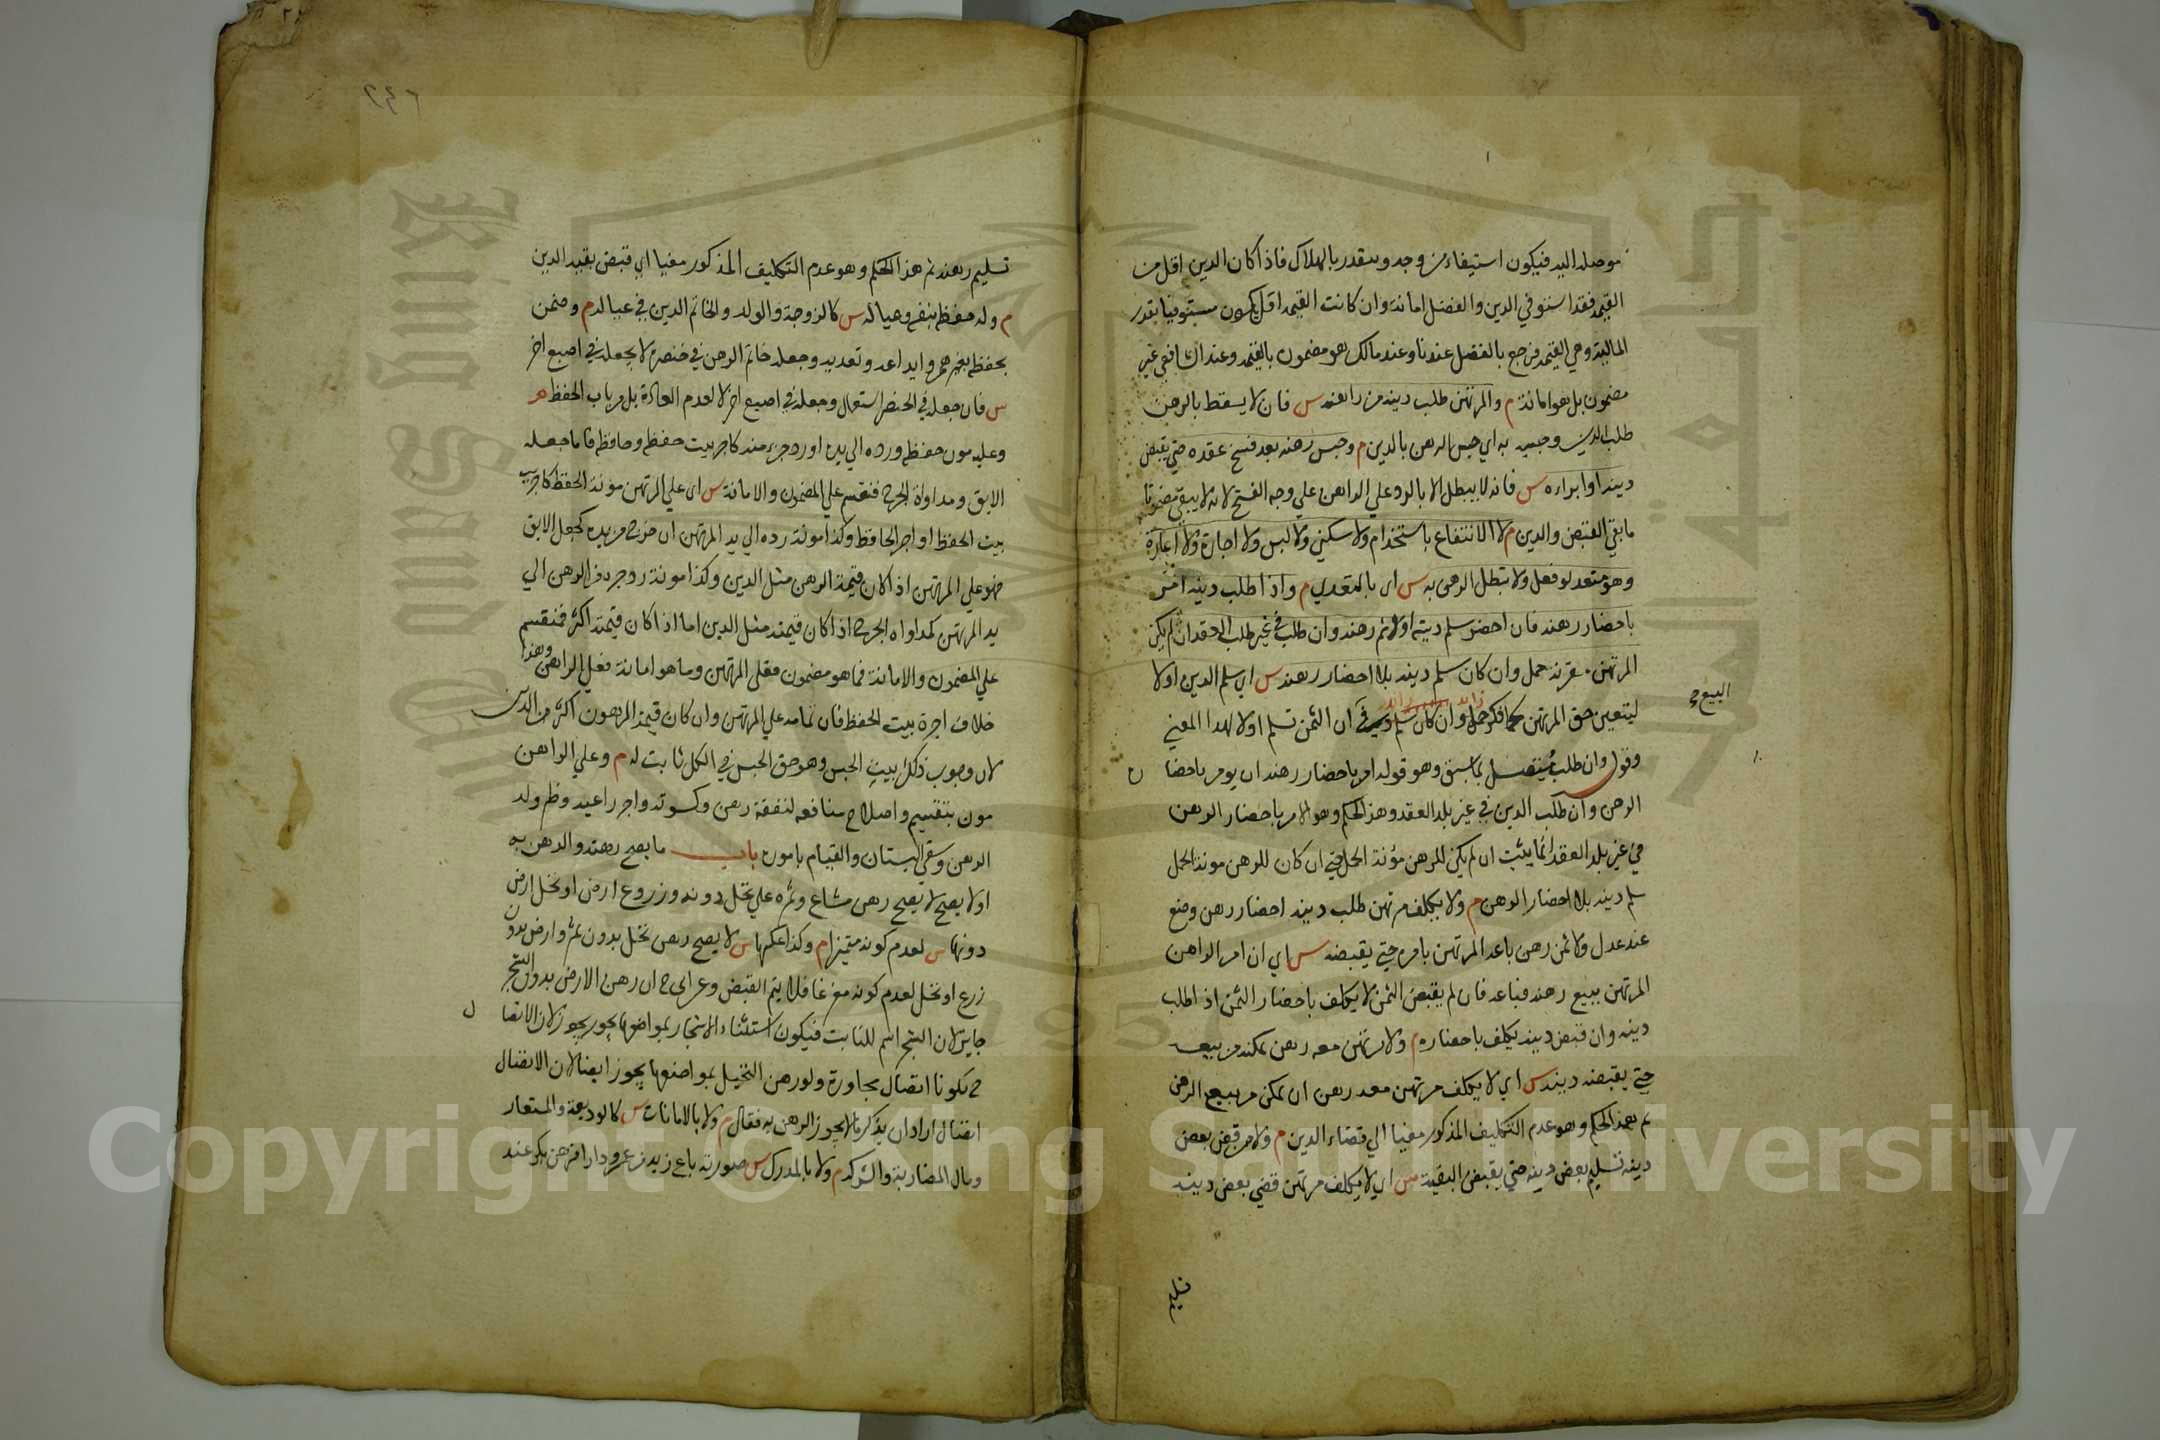 موصله اليد فيكون استيفاء من وجه ويتقدر بالهلاك فاذا كان الدين اقل من
القيمة فقد استوفي الدين والفضل امانة وان كانت القيمة اقل يكون مستوفيا بقدر
المالية وهي القيمة فرجع بالفضل عندنا وعند مالك هو مضمون بالقيمة وعند الشافعي غير
مضمون بل هو امانة م والمرتهن طلب دينه من راهنه س فان لا يسقط بالرهن
طلب الدين وحبسه به اي حبس الرهن بالدين م وحبس رهنه بعد فسخ عقده حتي يقبض
دينه او ابراءه س فانه لا يبطل الا بالرد علي الراهن علي وجه الفسخ لانه لا يبقي مضمونا
ما بقي القبض والدين م لا الانتفاع باستخدام ولا سكني ولا لبس ولا اجارة ولا اعارة
وهو متعد لو فعل ولا يبطل الرهن به س اي بالتعدي م واذا طلب دينه امر
باحضار رهنه فان احضر سلم دينه اولا ثم رهنه وان طلب في غير طلب العقد ان لم يكن
المرتهن مؤنة حمل وان كان سلم دينه بلا احضار رهنه س اي سلم الدين اولا
ليتعين حق المرتهن كما في ان الثمن تسلم اولا لهذا المعني
البيع ح
وقوله وان طلب متصل بما سبق وهو قوله امر باحضار رهنه ان يومر باحضا
الرهن وان طلب الدين في غير بلد العقد وهذا الحكم وهو الامر باحضار الرهن
في غير بلد العقد انما يثبت ان لم يكن للرهن مؤنة الحمل حتي ان كان للرهن مونة الحمل
سلم دينه بلا احضار الرهن م ولا يكلف مرتهن طلب دينه احضار رهن وضع
عند عدل ولا ثمن رهن باعه المرتهن بامره حتي يقبضه س اي ان امر الراهن
المرتهن ببيع رهنه فباعه فان لم يقبض الثمن لا يكلف باحضار الثمن اذ اطلب
دينه وان قبض دينه يكلف باحضاره م ولا مرتهن معه رهن تمكنه من بيعه
حتي يقبضه دينه س اي لا يكلف مرتهن معه رهن ان تمكن من بيع الرهن
ثم هذا الحكم وهو عدم التكليف المذكور مغيا الي قضاء الدين م ولا من قبض بعض
دينه تسليم بعض دينه حتي يقبض البقية س اي لا يكلف مرتهن قضي بعض دينه
تسليم
تسليم رهنه ثم هذا الحكم وهو عدم التكليف المذكور مغيا اي قبض بقية الدين
م وله حفظه بنفسه وعياله س كالزوجة والولد والخادم الذين في عياله م وضمن
بحفظه بغيرهم وايداعه وتعديه وجعله خاتم الرهن في خنصره لا بجعله في اصبع اخر
س فان جعله في الخنصر استعمال وجعله في اصبع اخر لا لعدم العادة بل من باب الحفظ م
وعليه مون حفظه ورده الي يده او رد جزء منه كاجر بيت حفظه وحافظه فاما جعله
الابق ومداواة الجرح فتقسم علي المضمون والامانة س اي علي المرتهن مونة الحفظ كاجر
بيت الحفظ او اجر الحافظ وكذا مونة رده الي يد المرتهن ان خرج من يده كجعل الابق
فهو علي المرتهن اذا كان قيمة الرهن مثل الدين وكذا مونة رد جزء من الرهن الي
يد المرتهن كمداواة الجرح اذا كان قيمته مثل الدين اما اذا كان قيمته اكثر فتقسم
علي المضمون والامانة فما هو مضمون فعلي المرتهن وما هو امانة فعلي الراهن وهذا
خلاف اجرة بيت الحفظ فان تمامه علي المرتهن وان كان قيمة المرهون اكثر من الدين
لان وجوب ذلك بسبب الحبس وهو حق الحبس في الكل ثابت له م وعلي الراهن
مون تبقيته واصلاح منافعه لنفقة رهن وكسوته واجر راعيه وظئر ولد
الرهن وسقي البستان والقيام بامون باب ما يصح رهنه والرهن به
اولا يصح لا يصح رهن مشاع وثمره علي نخل دونه وزروع ارض او نخل ارض
دونها س لعدم كونه متميزا م وكذا عكسها س لا يصح رهن نخل بدون ثمر وارض بدون
زرع او نخل لعدم كونه مفرغا فلا يتم القبض وعن ابي ح ان رهن الارض بدون الشجر
جايز لان الشجر اسم للنابت فيكون استثناء الاشجار بمواضعها يجوز لان الاتصا
ح يكونا اتصال مجاورة ولو رهن النخيل بمواضعها يجوز ايضا لان الاتصال
اتصال اراد ان يذكر ما لا يجوز الرهن به فقال م ولا بالامانات س كالوديعة والمستعار
ومال المضاربة والشركة م ولا بالدرك س صورته باع زيد من عمرو دارا فرهن بكر عند